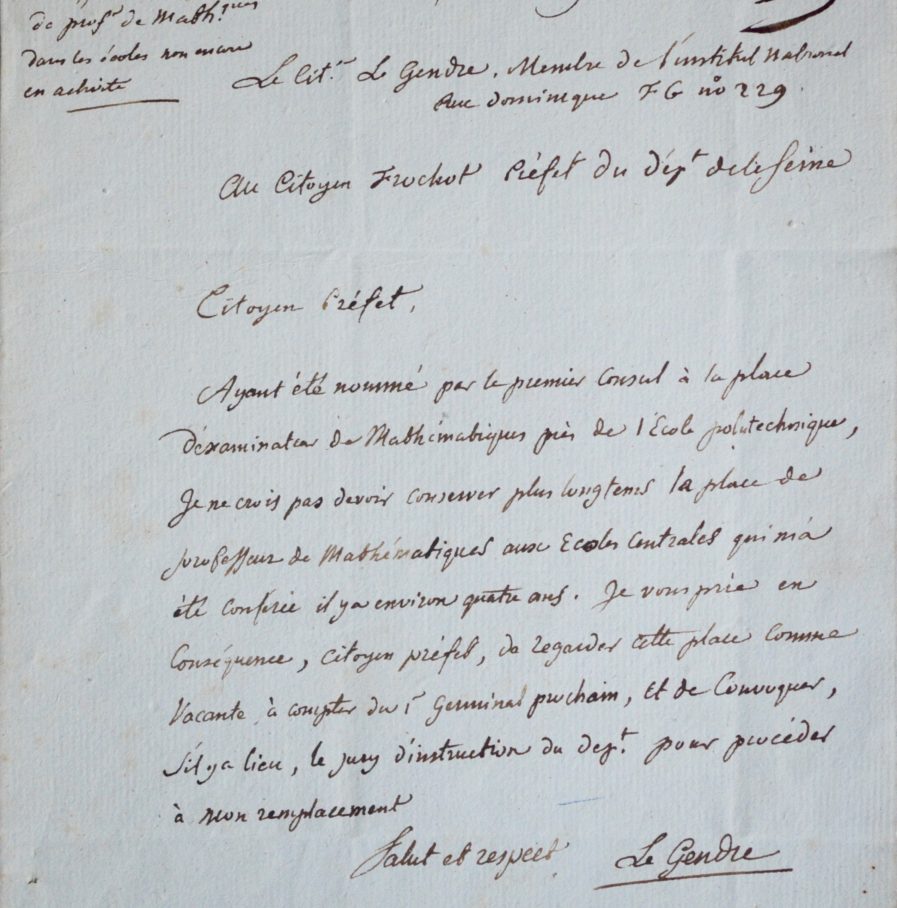 de profr de Mathques
dans les écoles non encore
en activité
Le Citn Le Gendre, Membre de l'institut National
Rue dominique FG no 229.
Au Citoyen Frochot Préfet du dépt de la Seine
Citoyen Préfet,
Ayant été nommé par le premier Consul à la place
d'éxaminateur de Mathématiques près de l'Ecole polytechnique,
Je ne crois pas devoir conserver plus longtems la place de
professeur de Mathématiques aux Ecoles Centrales qui m'a
été conférée il y a environ quatre ans. Je vous prie en
Conséquence, Citoyen préfet, de regarder cette place comme
Vacante, à compter du 1r Germinal prochain, et de Convoquer,
s'il y a lieu, le jury d'instruction du dept. pour procéder
à mon remplacement
Salut et respect
Le Gendre